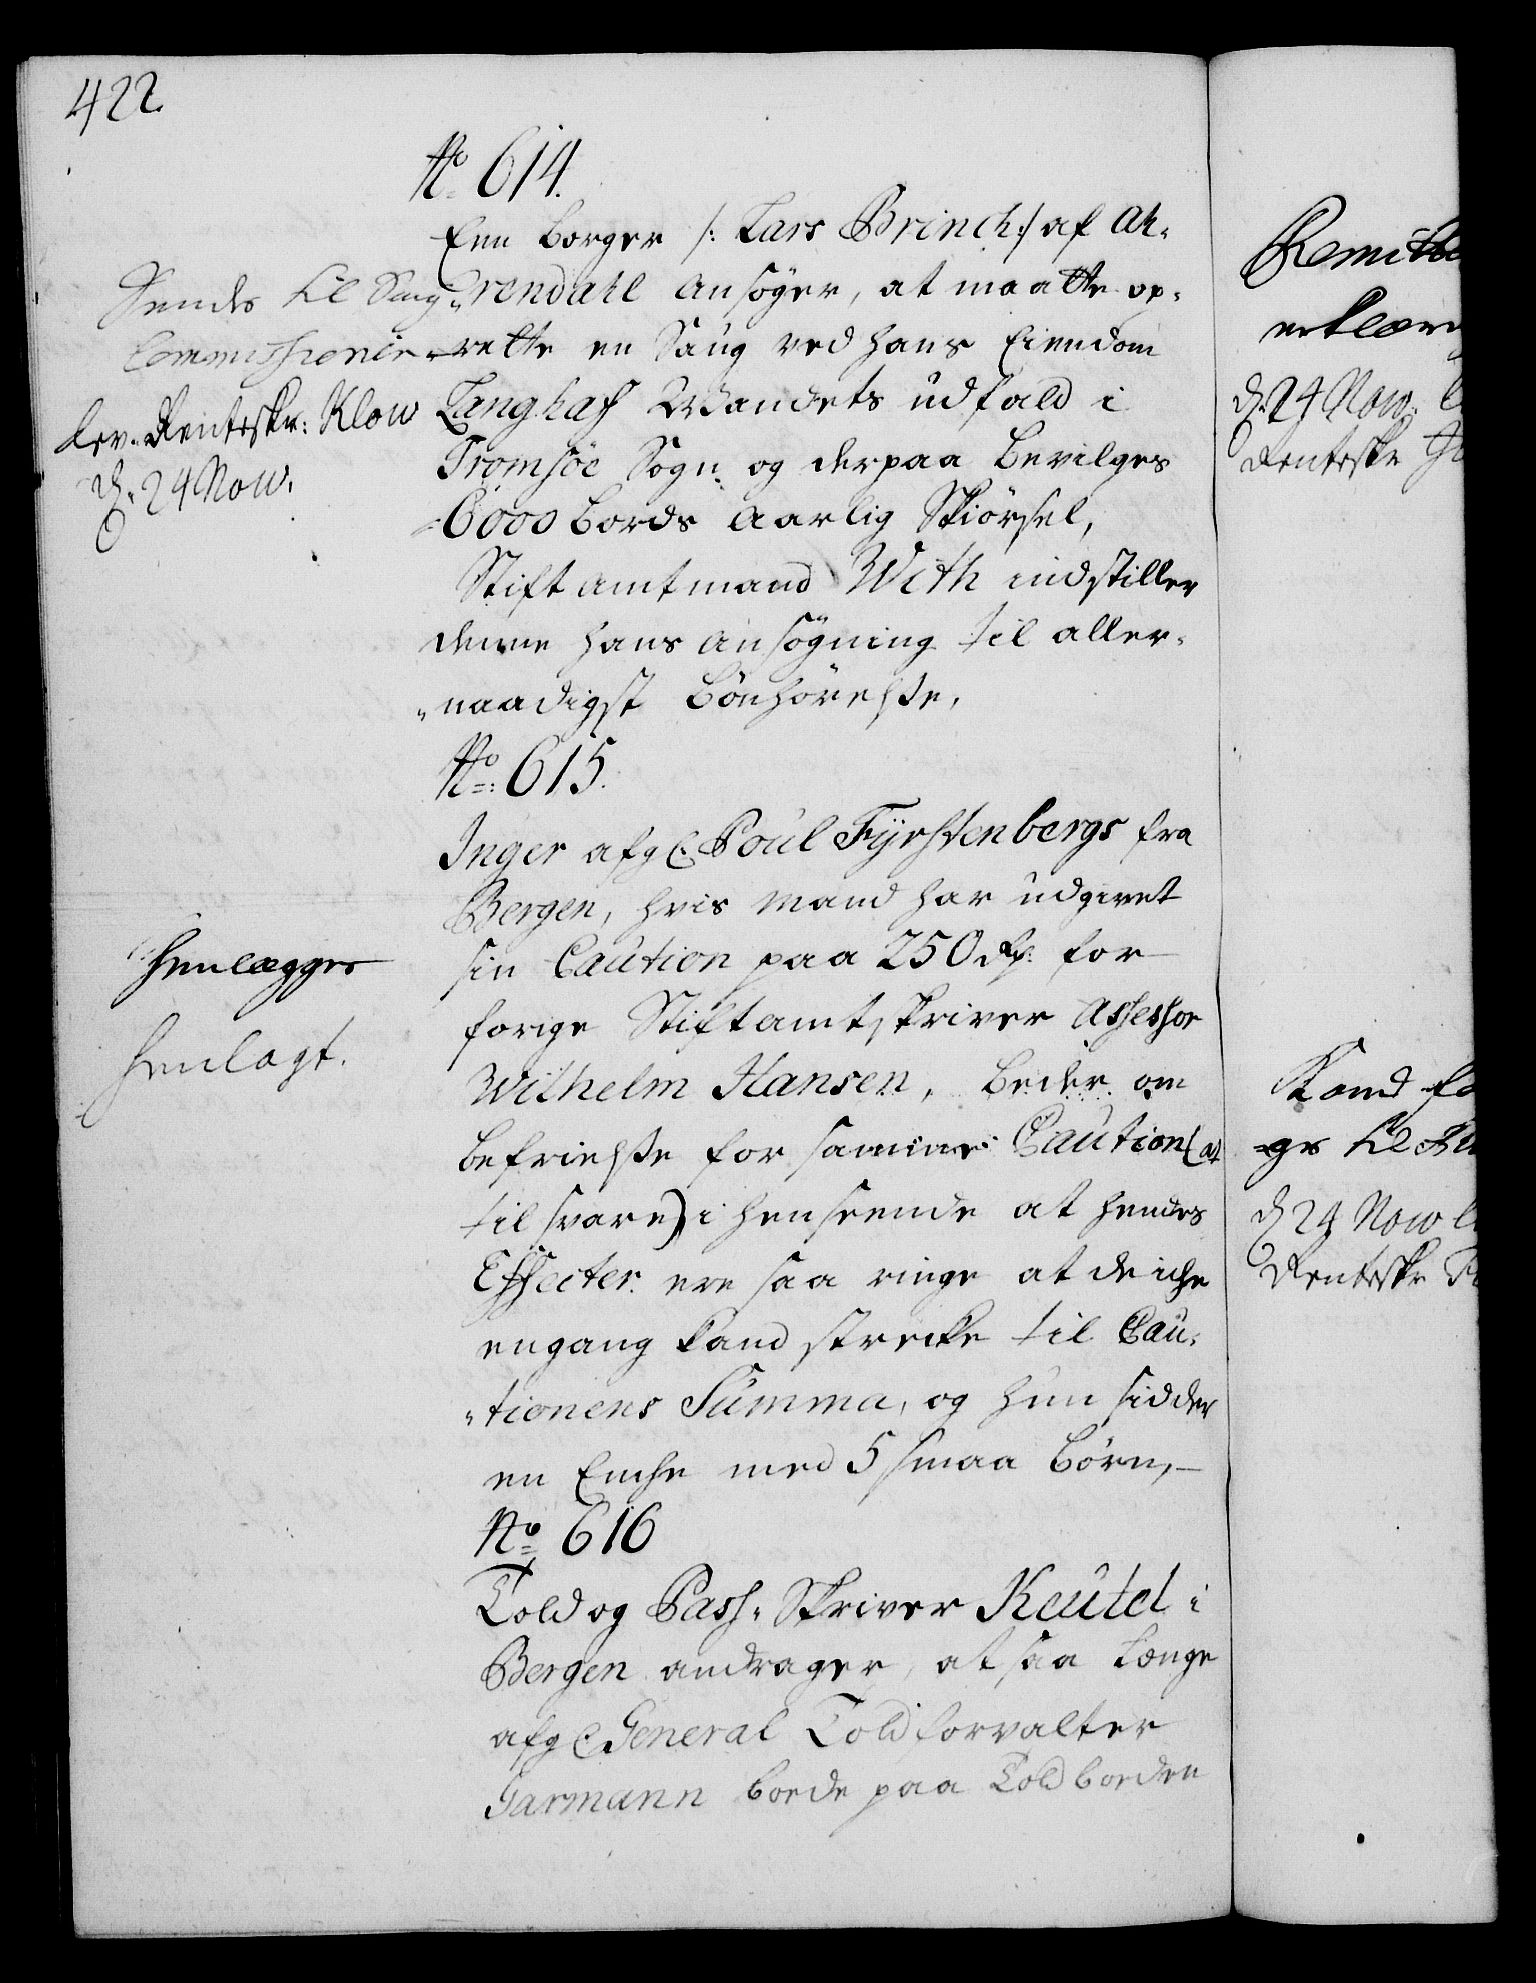 422.
No 614.
Een borger /: Lars Brinch :/ af Ah-
"rendahl ansøger, at maatte op-
"rette en Saug ved hans Eiendom
Langhaf Wandets udfald i
Tromsøe Sogn og derpaa bevilges
6000 bords aarlig Skiørsel,
Stiftamtmand With indstiller
denne hans ansøgning til aller-
"naadigst bønhørelse,
Sendes til Saug-
Commissionen
Lev. Renteskr: Klow
d. 24 Nov.
No: 615.
Inger afg: Poul Fyrstenbergs fra
Bergen, hvis Mand har udgivet
sin Caution paa 250 rd. for
forige Stiftamtskriver Assessor
Wilhelm Hansen, beder om
befrielse for samme Caution (at
til svare) i henseende at hendes
Effecter ere saa ringe at de iche
engang kand strecke til Cau-
"tionens Summa, og hun sidder
en Enche med 5 smaa børn,
henlægges
henlagt.
No 616
Told og Pass-Skriver Keutel i
Bergen andrager, at saa længe
afg: General Toldforvalter
Garmann boede paa Toldboeden
Remitte
erklær
d. 24 Nov. l
Renteskr
Kand
gs til
d 24 Nov l
Renteskr